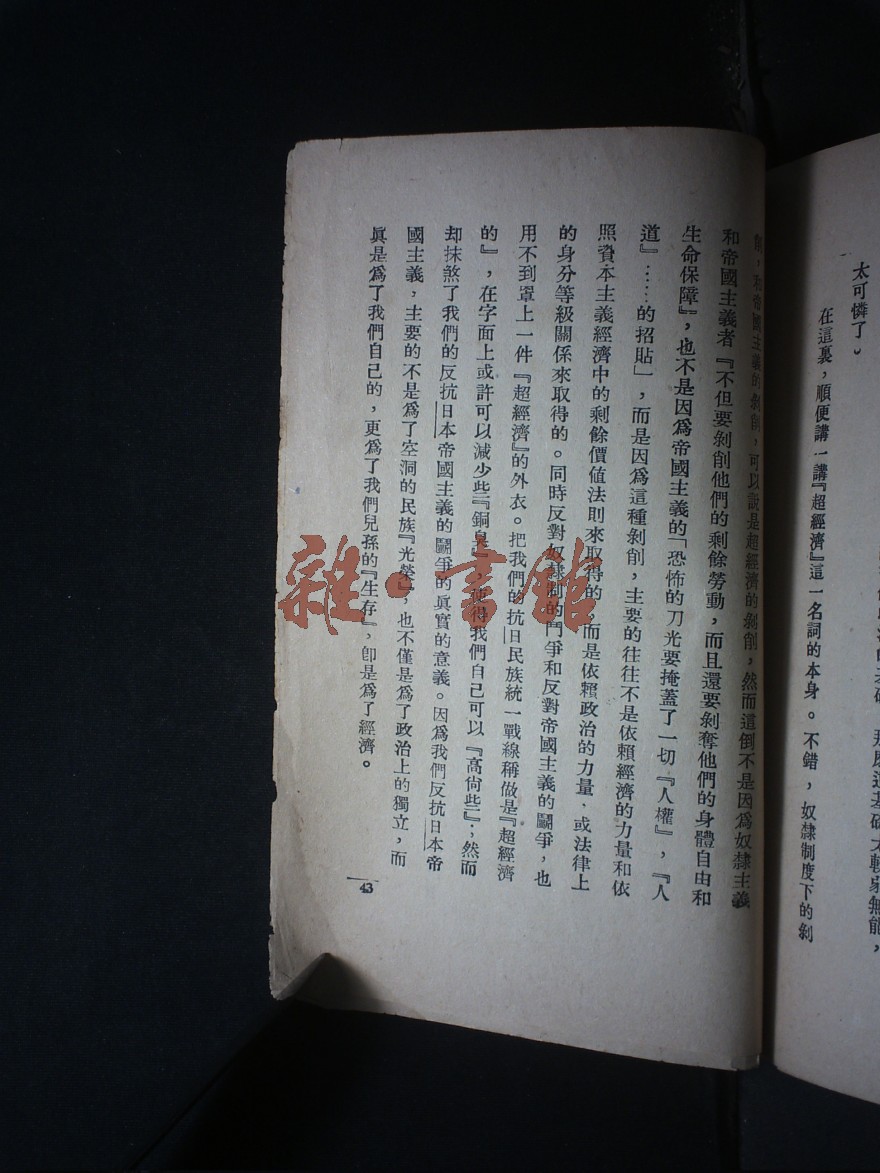 太可憐了。
在這裏，順便講一講『超經濟』這一名詞的本身。不錯，奴隸制度下的剝
削，和帝國主義的剝削，可以說是超經濟的剝削，然而這倒不是因爲奴隸主義
和帝國主義者『不但要剝削他們的剩餘勞動，而且還要剝奪他們的身體自由和
生命保障』，也不是因爲帝國主義的「恐怖的刀光要掩蓋了一切『人權』，『人
道』……的招貼」，而是因爲這種剝削，主要的往往不是依賴經濟的力量和依
照資本主義經濟中的剩餘價值法則來取得的，而是依賴政治的力量，或法律上
的身分等級關係來取得的。同時反對奴隸制的鬥爭和反對帝國主義的鬭爭，也
用不到罩上一件『超經濟』的外衣。把我們的抗日民族統一戰線稱做是『超經濟
的』，在字面上或許可以減少些『銅臭』，使得我們自己可以『高尙些』；然而
却抹煞了我們的反抗日本帝國主義的鬭爭的眞實的意義。因爲我們反抗日本帝
國主義，主要的不是爲了空洞的民族『光榮』，也不僅是爲了政治上的獨立，而
眞是爲了我們自己的，更爲了我們兒孫的『生存』，卽是爲了經濟。
43
雜·書館